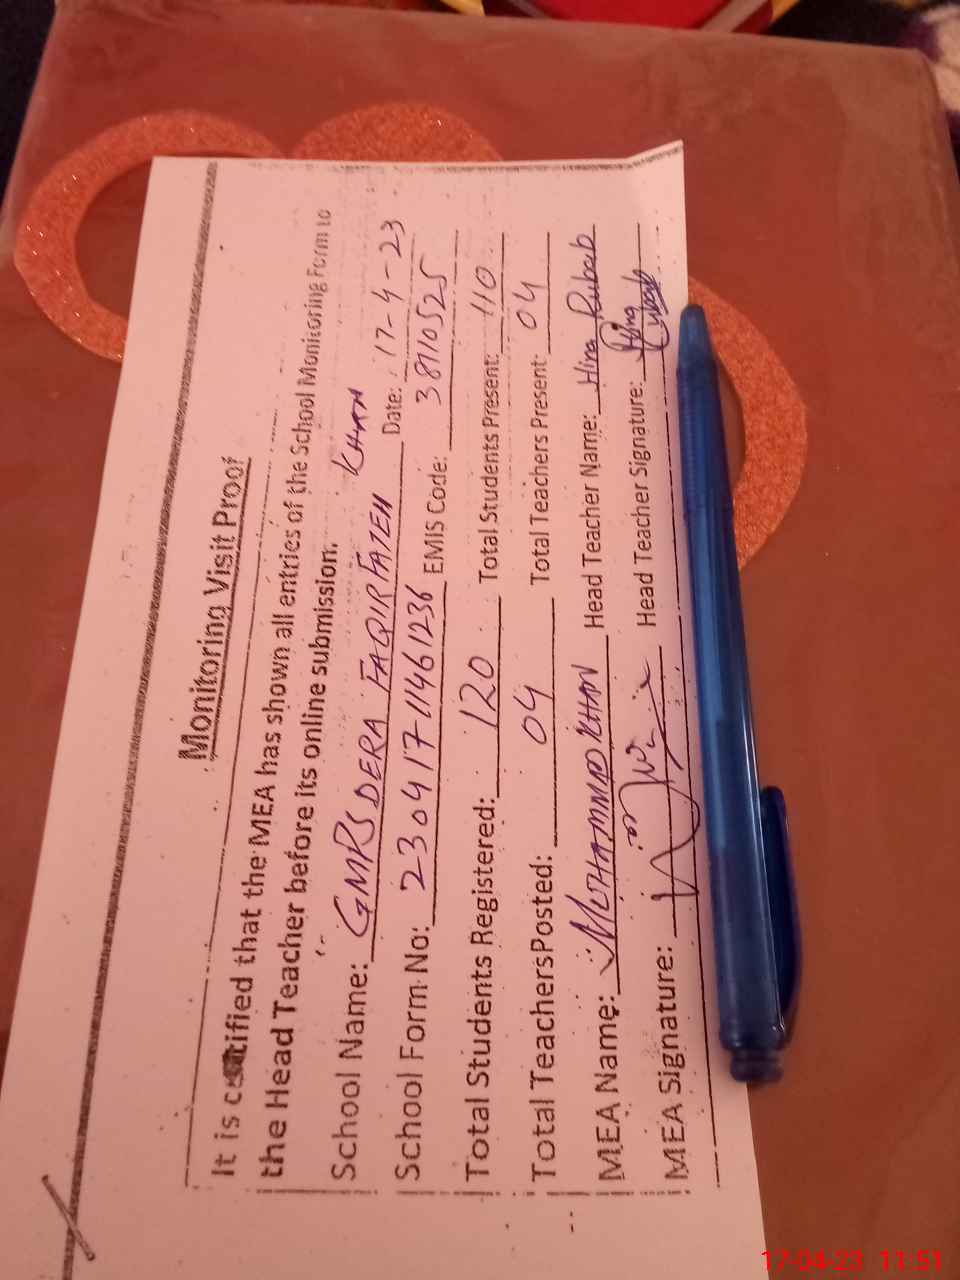 Monitoring Visit Proof
It is certified that the MEA has shown all entries of the School Monitoring Form to
the Head Teacher before its online submission.
School Name: GMPS DERA FAQIR FATEH KHAN Date: 17-4-23
School Form No: 230417-11461236 EMIS Code: 38110525
Total Students Registered: 120 Total Students Present: 110
Total TeachersPosted: 04 Total Teachers Present: 04
MEA Name: MUHAMMAD KHAN Head Teacher Name: Hira Rubab
MEA Signature: Head Teacher Signature: Hina Rubab
17-04-23 11:51